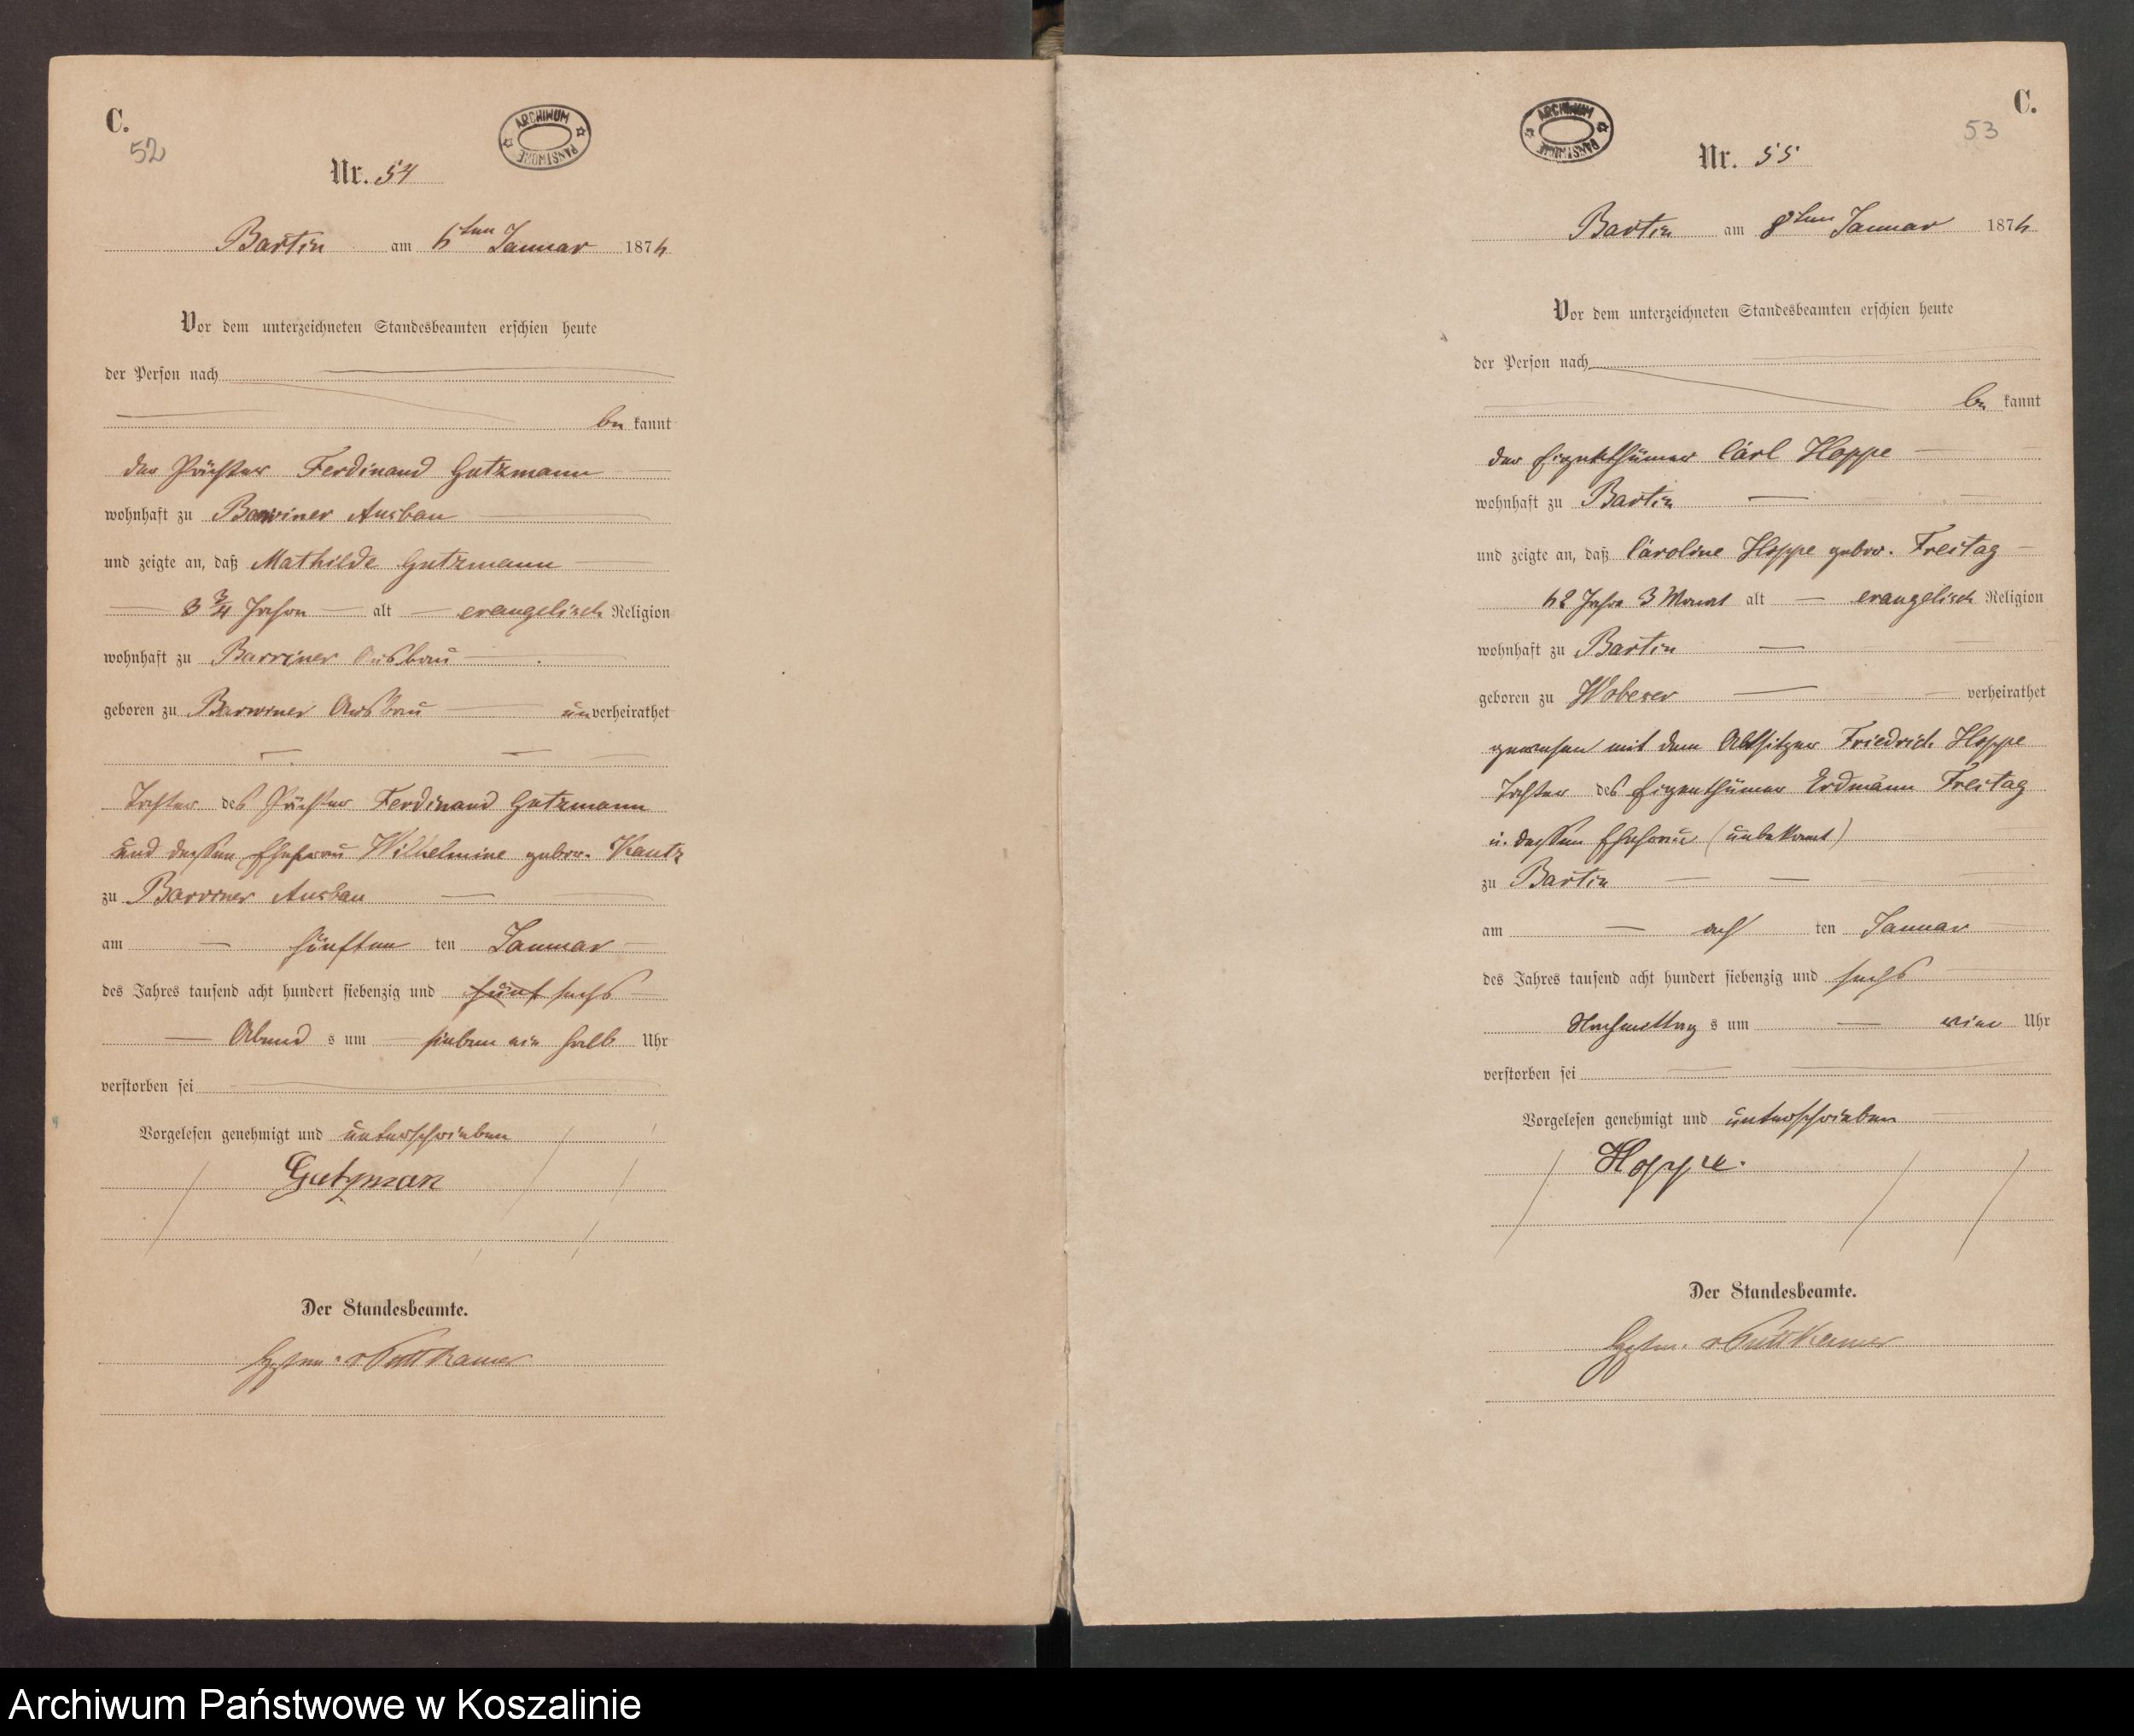 C.
52
ARCHIWUM PAŃSTWOWE
Nr. 54
Bartin am 6ten Januar 1876
Vor dem unterzeichneten Standesbeamten erschien heute
der Person nach
be kannt
der Pächter Ferdinand Gutzmann
wohnhaft zu Barviner Ausbau
und zeigte an, daß Mathilde Gutzmann
3 3/4 Jahr alt evangelisch Religion
wohnhaft zu Barviner Ausbau
geboren zu Barviner Ausbau unverheirathet
Tochter des Pächter Ferdinand Gutzmann
und dessen Ehefrau Wilhelmine gebor. Kautz
zu Barviner Ausbau
am fünften ten Januar
des Jahres tausend acht hundert siebenzig und fünf sechs
Abend s um sieben ein halb Uhr
verstorben sei
Vorgelesen genehmigt und unterschrieben
Gutzman
Der Standesbeamte.
v Puttkamer
C.
53
ARCHIWUM PAŃSTWOWE
Nr. 55
Bartin am 8ten Januar 1876
Vor dem unterzeichneten Standesbeamten erschien heute
der Person nach
be kannt
der Eigenthümer Carl Hoppe
wohnhaft zu Bartin
und zeigte an, daß Caroline Hoppe gebor. Freitag
62 Jahr 3 Monat alt evangelisch Religion
wohnhaft zu Bartin
geboren zu Woberer verheirathet
gewesen mit dem Altsitzer Friedrich Hoppe
Tochter des Eigenthümer Erdmann Freitag
u. dessen Ehefrau (unbekannt)
zu Bartin
am ach ten Januar
des Jahres tausend acht hundert siebenzig und sechs
Nachmittag s um vier Uhr
verstorben sei
Vorgelesen genehmigt und unterschrieben
Hoppe.
Der Standesbeamte.
v Puttkamer
Archiwum Państwowe w Koszalinie